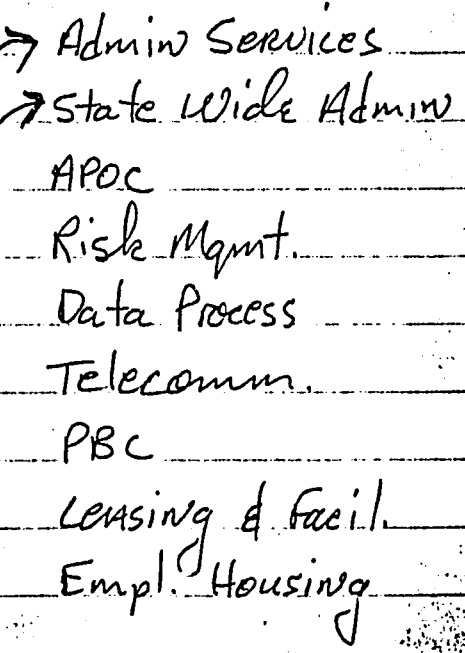 → Admin Services
→ State Wide Admin
APOC
Risk Mgmt.
Data Process
Telecomm.
PBC
Leasing & Facil.
Empl. Housing